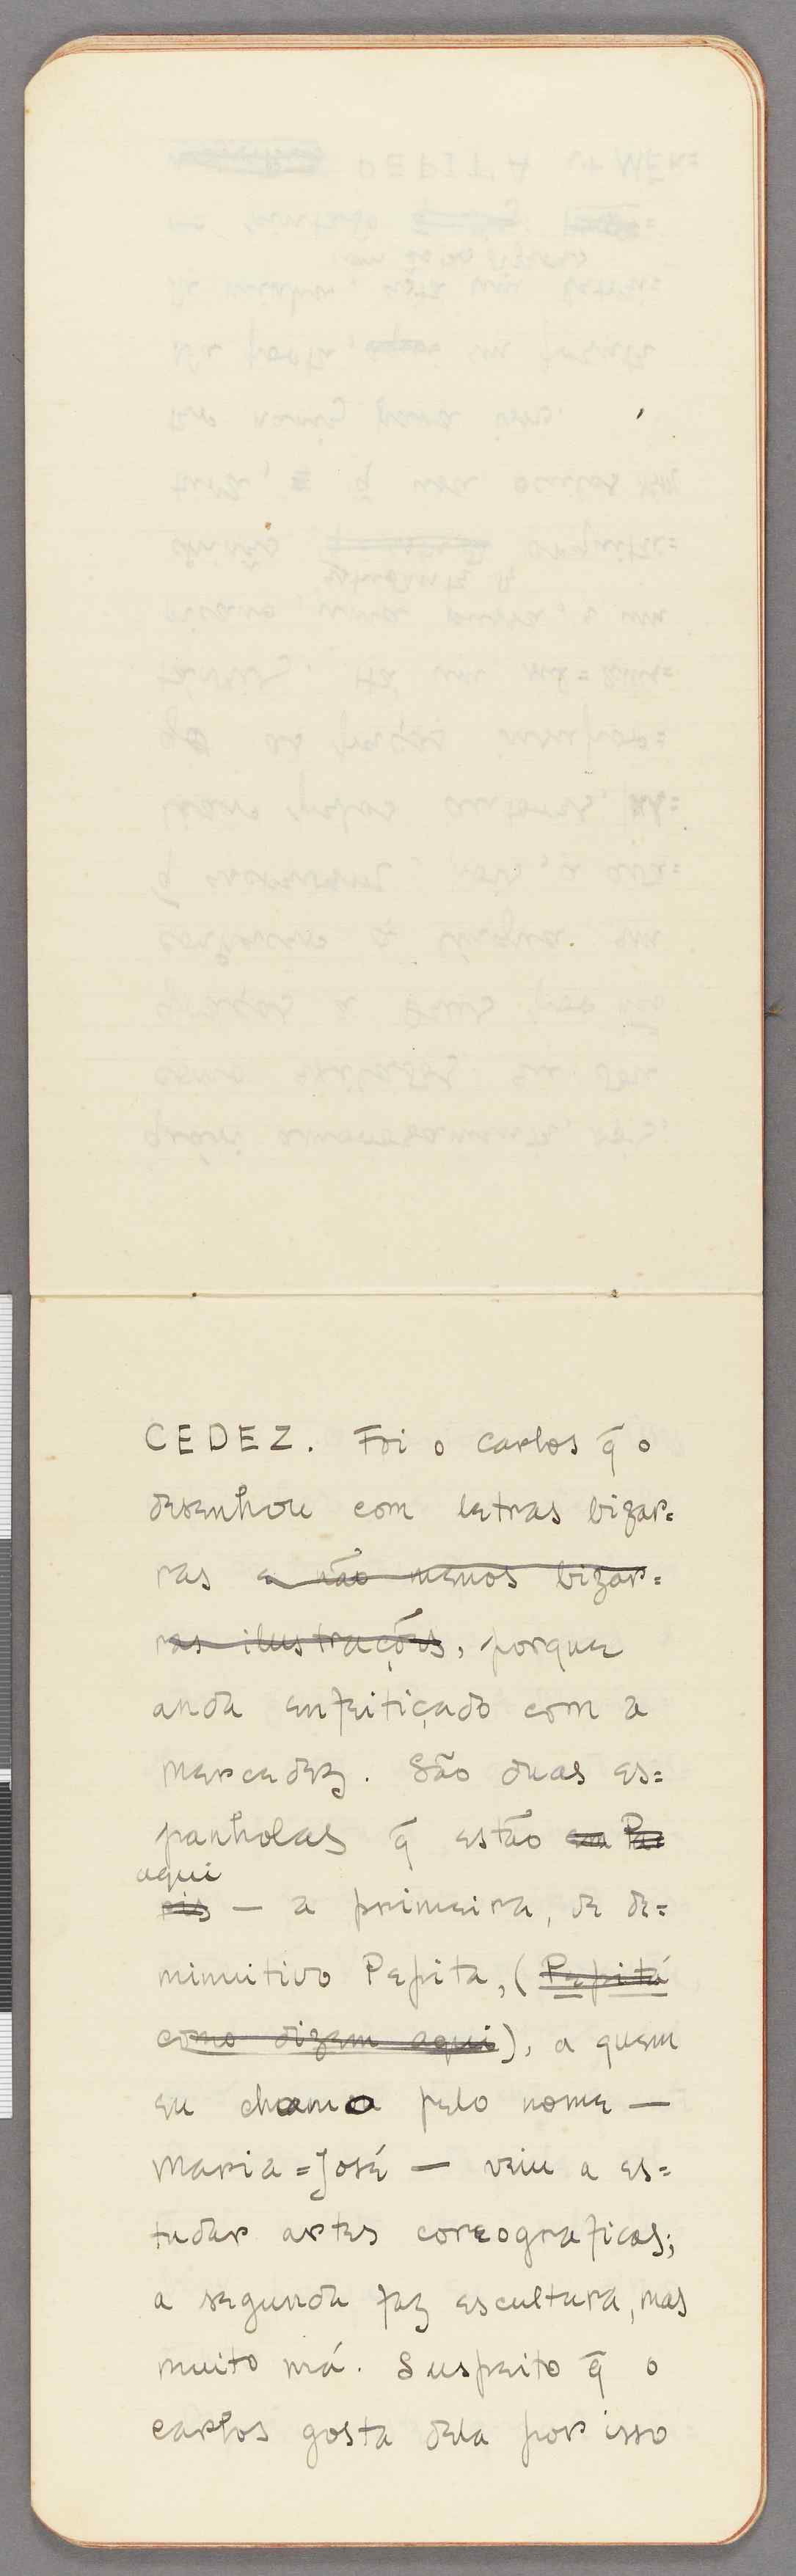 CEDEZ. Foi o Carlos q̄ o
desenhou com letras bizar=
ras e não menos bizar=
ras ilustrações, porque
anda enfeitiçado com a
Mercedez. São duas es=
panholas q̄ estão em Pa=
aqui
ris — a primeira, de de=
minuitivo Pepita, (Pepitá
como dizem aqui), a quem
eu chamo pelo nome —
Maria=José — veiu a es=
tudar artes coreograficas;
a segunda faz escultura, mas
muito má. Suspeito q̄ o
Carlos gosta dela por isso